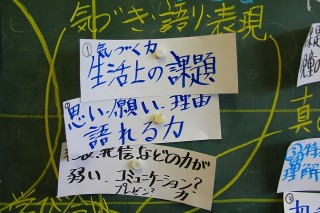 気づき・語り・表現
① 気づく力
生活上の課題
思い、願い、理由
語れる力
発信などの力が
弱い、コミュニケーション?
プレゼン? 力
真の
理解